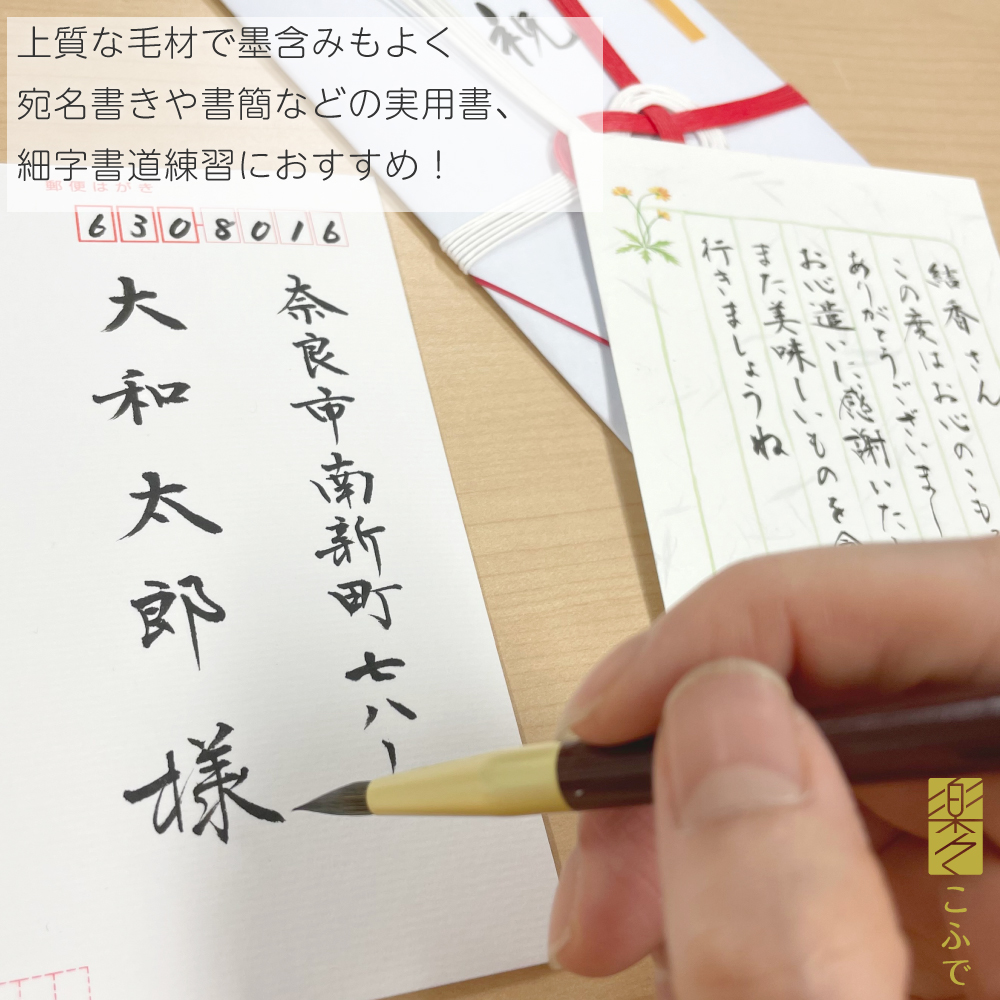 上質な毛材で墨含みもよく
宛名書きや書簡などの実用書、
細字書道練習におすすめ！
祝
郵便はがき
630-8016
奈良市南新町七八ー
大和太郎様
結香さん
この度はお心のこも
ありがとうございまし
お心遣いに感謝いた
また美味しいものを食
行きましょうね
楽々
こふで